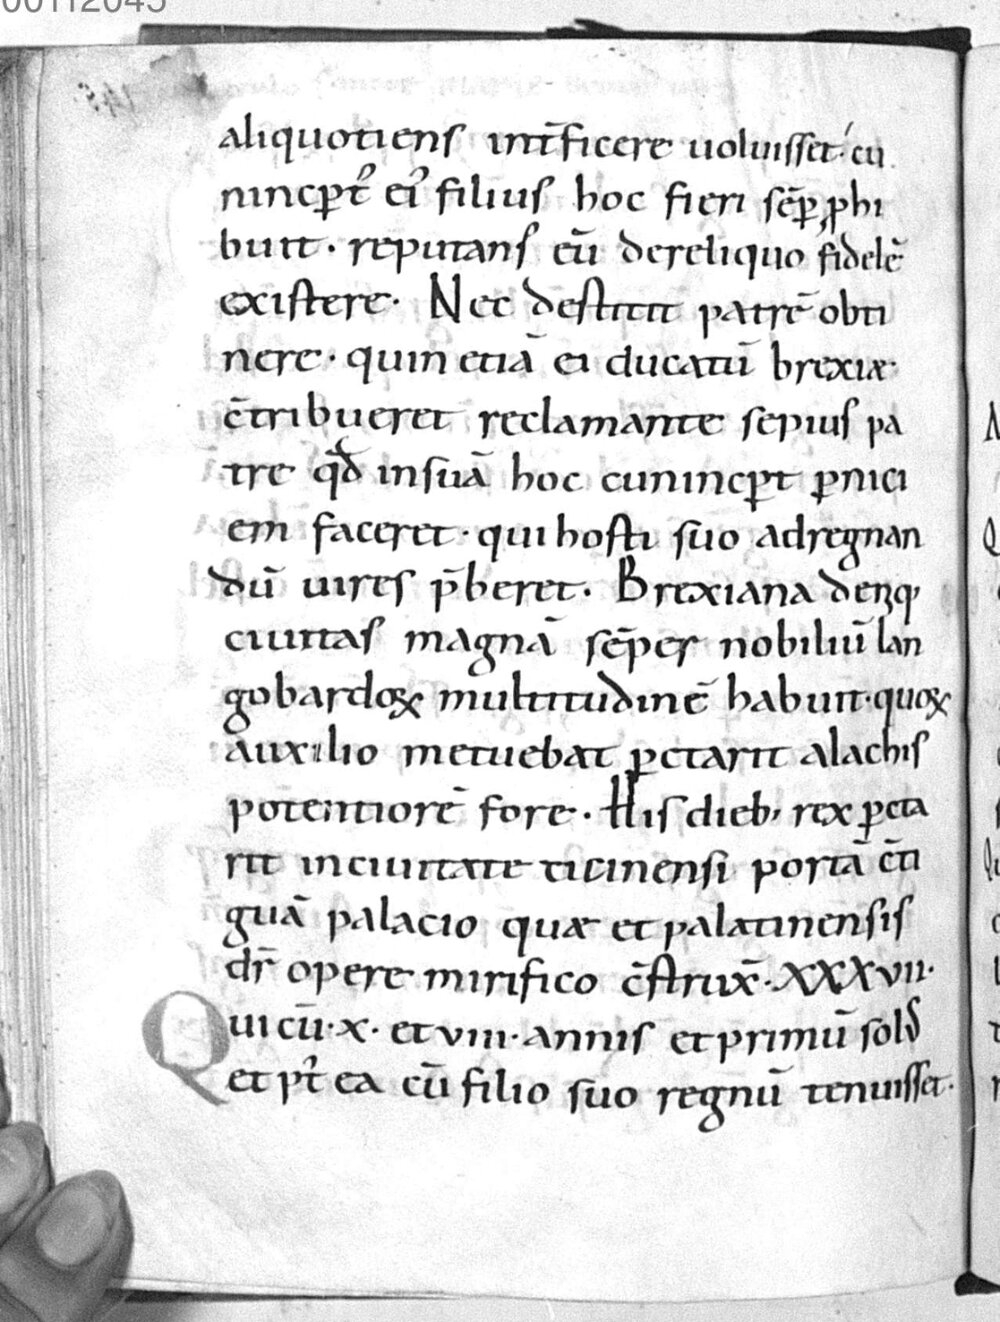 aliquotiens int̄ficere uoluisset· cu
nincꝑt᾿ ei᾿ filius hoc fieri sēꝑ ꝓhi
buit· reputans eū dereliquo fidelē
existere· Nec destitit patrē obti
nere· quin etiā ei ducatū brexiæ·
c̄tribueret reclamante sepius pa
tre qd̄ insuā hoc cunincꝑt ꝑnici
em faceret· qui hosti suo adregnan
dū uires p̄beret. Brexiana deniq;
ciuitas magnā sēper nobiliū lan
gobardoꝝ multitudinē habuit· quoꝝ
auxilio metuebat ꝑctarit alachis
potentiorē fore· His dieb; rex ꝑcta
rit inciuitate ticinensi portā c̄ti
guā palacio quæ et palatinensis
dr̄ opere mirifico c̄strux̄· XXXVII·
Qui cū· x· et viii· annis et primū sol᷆
et pt᾿ ea cū filio suo regnū tenuisset·